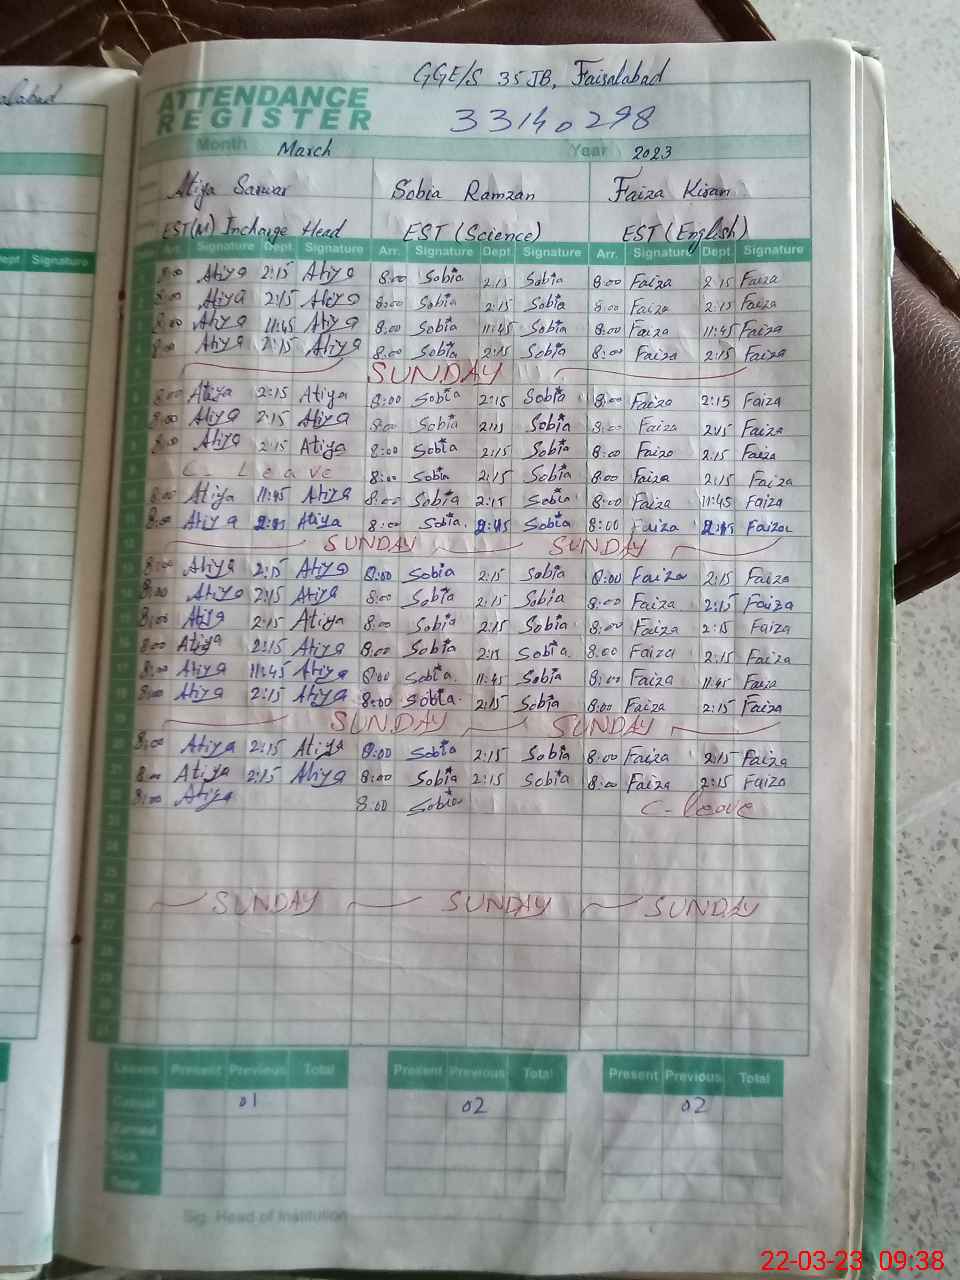 GGE/S 35 JB, Faisalabad
ATTENDANCE
REGISTER 33140298
Month March Year 2023
Atiya Sarwar Sobia Ramzan Faiza Kiran
EST(M) Incharge Head EST (Science) EST (English)
Dept Signature Arr. Signature Dept Signature Arr. Signature Dept Signature Arr. Signature Dept Signature
1 8:00 Atiya 2:15 Atiya 8:00 Sobia 2:15 Sobia 8:00 Faiza 2:15 Faiza
2 8:00 Atiya 2:15 Atiya 8:00 Sobia 2:15 Sobia 8:00 Faiza 2:15 Faiza
3 8:00 Atiya 11:45 Atiya 8:00 Sobia 11:45 Sobia 8:00 Faiza 11:45 Faiza
4 8:00 Atiya 2:15 Atiya 8:00 Sobia 2:15 Sobia 8:00 Faiza 2:15 Faiza
5 SUNDAY
6 8:00 Atiya 2:15 Atiya 8:00 Sobia 2:15 Sobia 8:00 Faiza 2:15 Faiza
7 8:00 Atiya 2:15 Atiya 8:00 Sobia 2:15 Sobia 8:00 Faiza 2:15 Faiza
8 8:00 Atiya 2:15 Atiya 8:00 Sobia 2:15 Sobia 8:00 Faiza 2:15 Faiza
9 C- Leave 8:00 Sobia 2:15 Sobia 8:00 Faiza 2:15 Faiza
10 8:00 Atiya 11:45 Atiya 8:00 Sobia 2:15 Sobia 8:00 Faiza 11:45 Faiza
11 8:00 Atiya 2:15 Atiya 8:00 Sobia 2:45 Sobia 8:00 Faiza 2:15 Faiza
12 SUNDAY SUNDAY
13 8:00 Atiya 2:15 Atiya 8:00 Sobia 2:15 Sobia 8:00 Faiza 2:15 Faiza
14 8:00 Atiya 2:15 Atiya 8:00 Sobia 2:15 Sobia 8:00 Faiza 2:15 Faiza
15 8:00 Atiya 2:15 Atiya 8:00 Sobia 2:15 Sobia 8:00 Faiza 2:15 Faiza
16 8:00 Atiya 2:15 Atiya 8:00 Sobia 2:15 Sobia 8:00 Faiza 2:15 Faiza
17 8:00 Atiya 11:45 Atiya 8:00 Sobia 11:45 Sobia 8:00 Faiza 11:45 Faiza
18 8:00 Atiya 2:15 Atiya 8:00 Sobia 2:15 Sobia 8:00 Faiza 2:15 Faiza
19 SUNDAY SUNDAY
20 8:00 Atiya 2:15 Atiya 8:00 Sobia 2:15 Sobia 8:00 Faiza 2:15 Faiza
21 8:00 Atiya 2:15 Atiya 8:00 Sobia 2:15 Sobia 8:00 Faiza 2:15 Faiza
22 8:00 Atiya 8:00 Sobia C- leave
23
24
25
26 SUNDAY SUNDAY SUNDAY
27
28
29
30
31
Leaves Present Previous Total Present Previous Total Present Previous Total
Casual 01 02 02
Earned
Sick
Total
Sig. Head of Institution
22-03-23 09:38